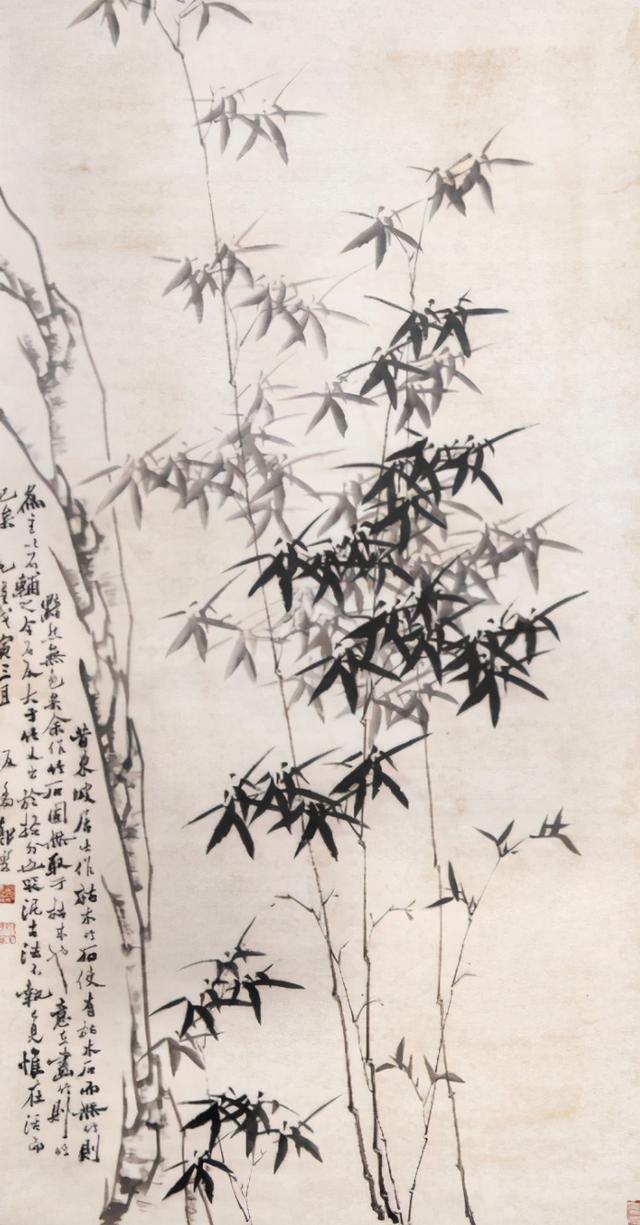 昔東坡居士作枯木竹石使有枯木石而無竹則
黯然無色矣余作竹石固無取于枯木也意在畫竹則竹
為主以石輔之今石反大于竹又出於格外也不泥古法不執己見惟在活而
已矣 乾隆戊寅三月 板橋鄭燮